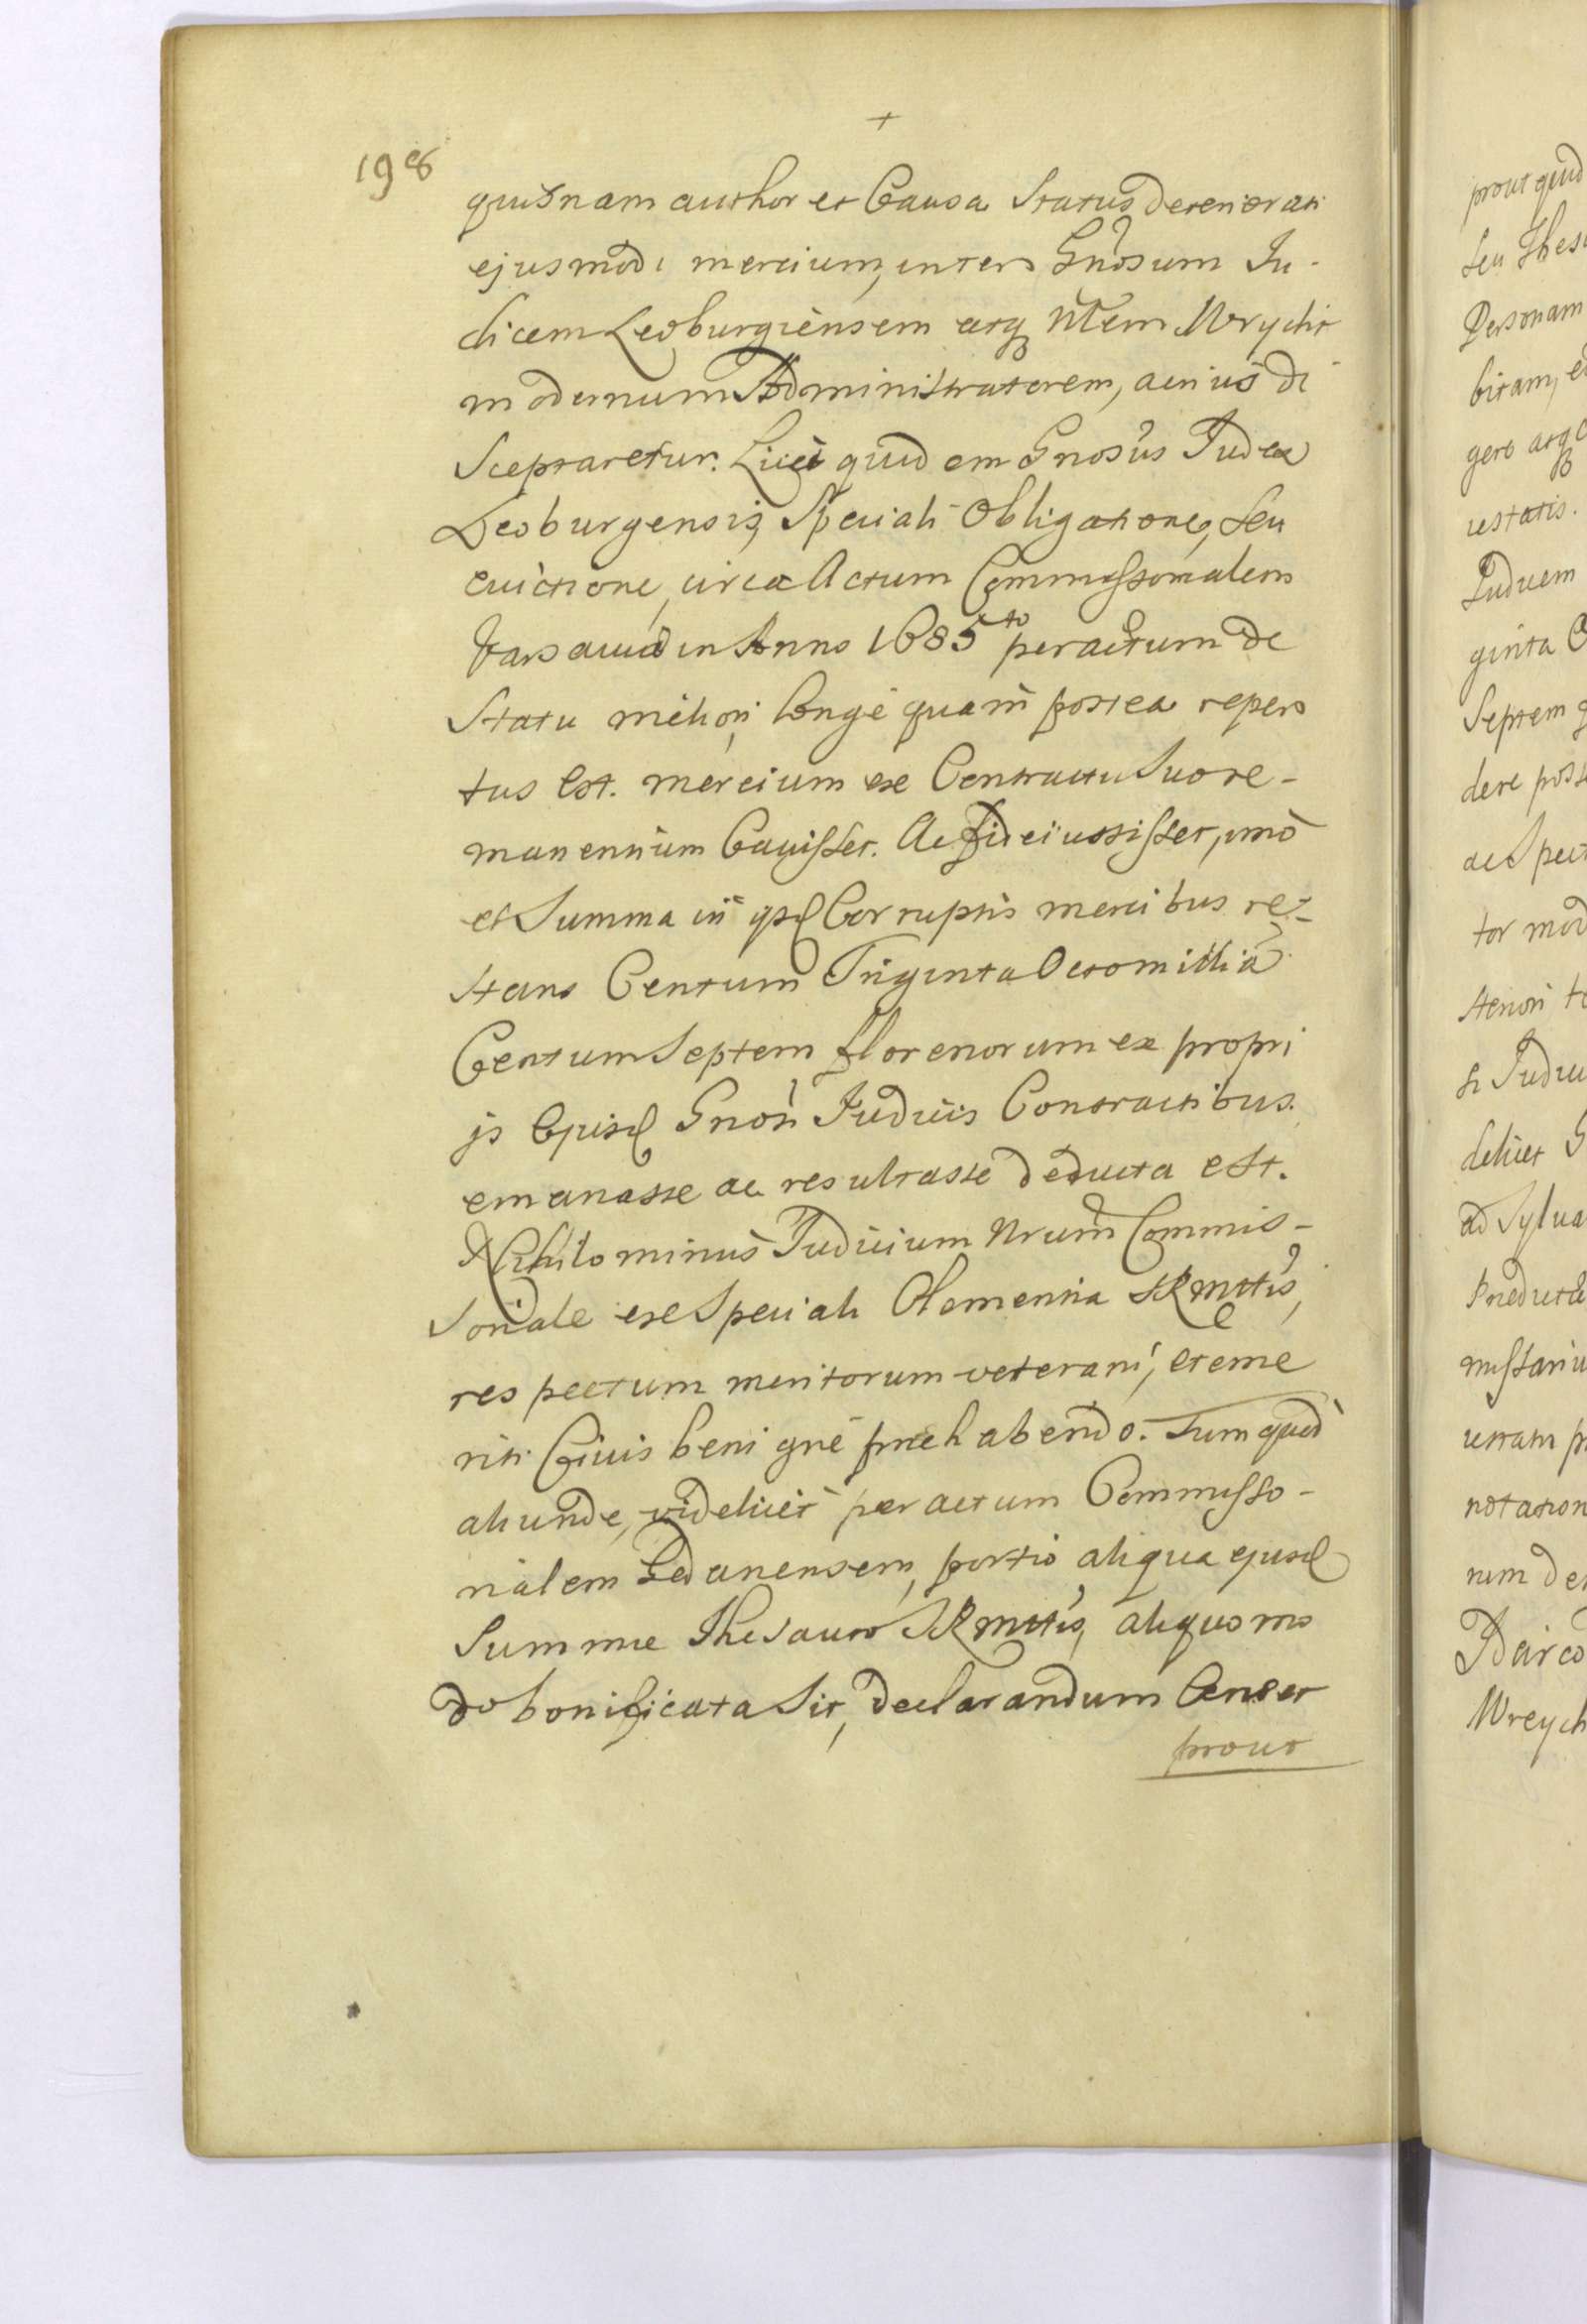 +
198
quisnam author et Causa Status deteriorati
ejusmodi mercium, inter Gnosum Ju-
dicem Leoburgiensem atq Nlem Wrycht
modernum Administratorem, acrius di
Sceptaretur. Licet quidem Gnosus Judex
Leoburgensis, Speciali Obligatione, Seu
evictione, circa Actum Commissorialem
Varsaviae in Anno 1685to peractum de
Statu meliori, longè quam postea reper
tus est. mercium ex Contractu Suo re-
manentium Cavisset. Ac fideiussisset, imò
et Summa in ipsis Corruptis mercibus re-
stans Centum Triginta Octo millia
Centum Septem florenorum ex propri
js ejusd Gnosi Judicis Contractibus
emanasse ac resultasse deducta est.
Nihilominus Judicium Nrum Commis-
soriale ex Speciali Clementia SRMttis,
respectum meritorum veterani, et eme
riti Civis benigne praehabendo. Tum quod
aliunde, videlicet per actum Commisso-
rialem Gedanensem, portio aliqua ejusd
Summae Thesauro SRMttis, aliquo mo
do bonificata Sit, declarandum Censet
prout
prout quid
Seu Thes
Personam
bitam, e
gero atq
testatis.
Judicem
ginta
Septem
dere poss
ac Spect
tor mod
steriori
si Judic
delicet G
ad Sylva
Praeducta
missariu
notation
rum de
Wreych